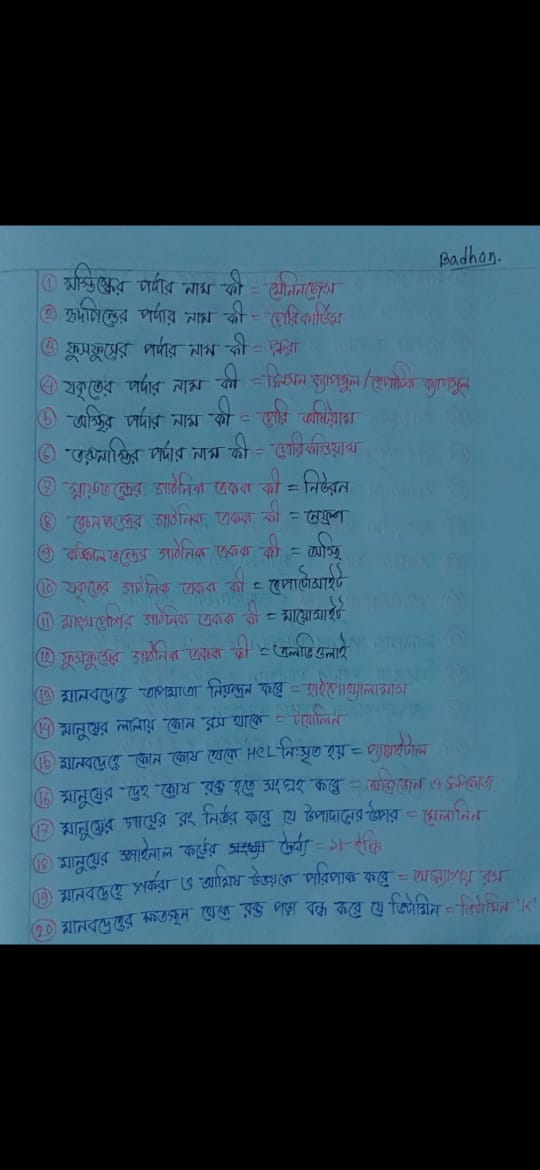 Badhon.
① মস্তিষ্কের পর্দার নাম কী = মেনিনজেস
② হৃদপিন্ডের পর্দার নাম কী = পেরিকার্ডিয়াম
③ ফুসফুসের পর্দার নাম কী = প্লুরা
④ যকৃতের পর্দার নাম কী = গ্লিসন ক্যাপসুল / হেপাটিক ক্যাপসুল
⑤ অস্থির পর্দার নাম কী = পেরি অস্টিয়াম
⑥ তরুনাস্থির পর্দার নাম কী = পেরিকন্ড্রিয়াম
⑦ স্নায়ুতন্ত্রের গাঠনিক একক কী = নিউরন
⑧ রেচনতন্ত্রের গাঠনিক একক কী = নেফ্রন
⑨ কঙ্কালতন্ত্রের গাঠনিক একক কী = অস্থি
⑩ যকৃতের গাঠনিক একক কী = হেপাটোসাইট
⑪ মাংসপেশির গাঠনিক একক কী = মায়োসাইট
⑫ ফুসফুসের গাঠনিক একক কী = এলভিওলাই
⑬ মানবদেহে তাপমাত্রা নিয়ন্ত্রন করে = হাইপোথ্যালামাস
⑭ মানুষের লালায় কোন রস থাকে = টায়ালিন
⑮ মানবদেহে কোন কোষ থেকে HCL নিঃসৃত হয় = প্যারাইটাল
⑯ মানুষের দেহ কোষ রক্ত হতে সংগ্রহ করে = অক্সিজেন ও গ্লুকোজ
⑰ মানুষের গায়ের রং নির্ভর করে যে উপাদানের উপর = মেলানিন
⑱ মানুষের স্পাইনাল কর্ডের দৈর্ঘ্য = ১৮ ইঞ্চি
⑲ মানবদেহে শর্করা ও আমিষ উভয়কে পরিপাক করে = অগ্ন্যাশয় রস
⑳ মানবদেহের ক্ষতস্থান থেকে রক্ত পড়া বন্ধ করে যে ভিটামিন = ভিটামিন 'K'